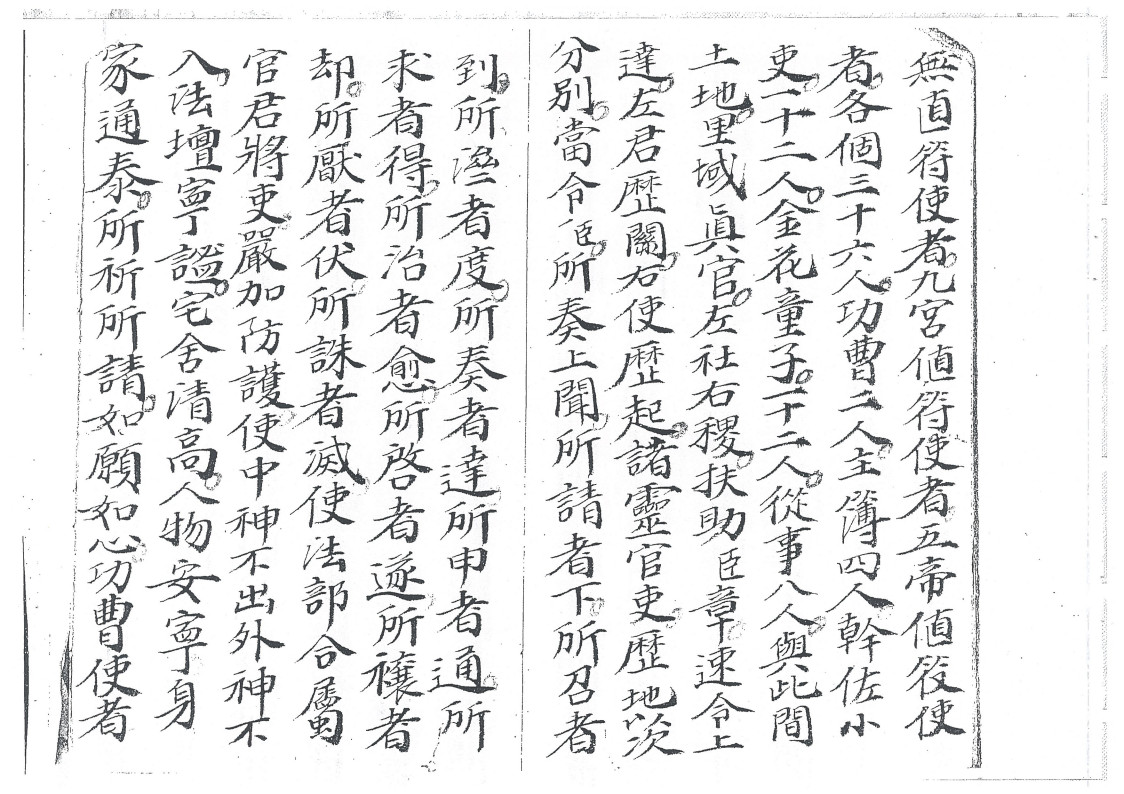 無直符使者九宮值符使者五帝值符使
者各個三十六人功曹二人主簿四人幹佐小
吏一十二人金花童子一十二人從事八人與此間
土地里域真官左社右稷扶助臣章速令上
達左君歷關右使歷起諸靈官吏歷地次
分別當令臣所奏上聞所請者下所召者
到所濟者度所奏者達所申者通所
求者得所治者愈所啓者遂所禳者
却所厭者伏所誅者滅使法部合屬
官君將吏嚴加防護使中神不出外神不
入法壇寧謐宅舍清高人物安寧身
家通泰所祈所請如願如心功曹使者